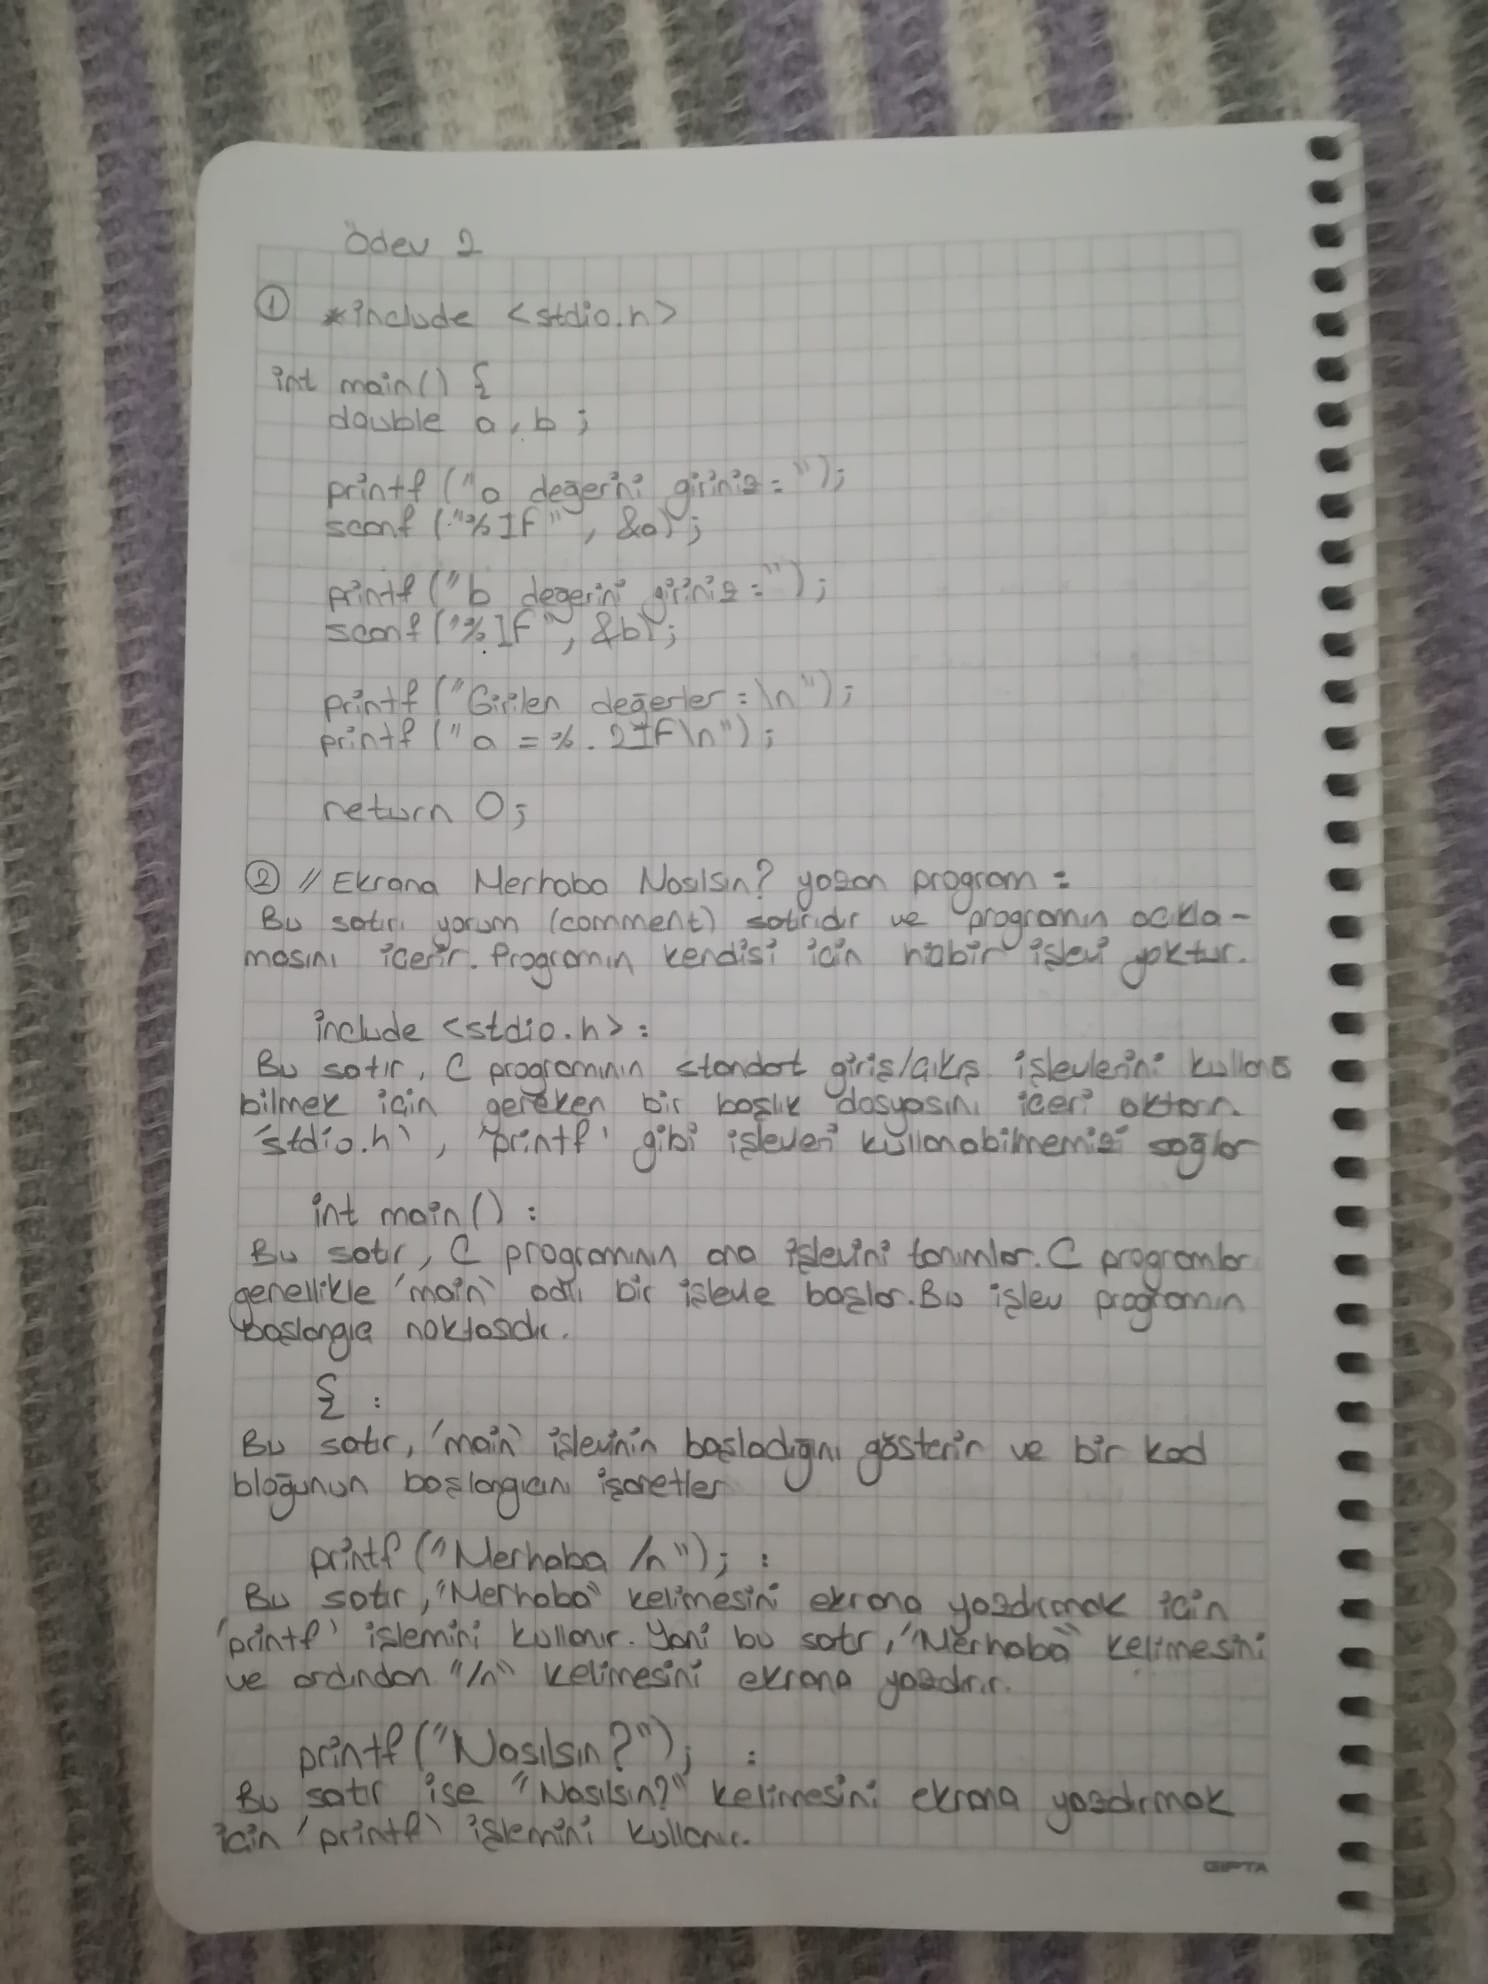 Ödev 2
① *include <stdio.h>
int main() {
double a, b ;
printf ("a değerini giriniz = ");
scanf ("%If" , &a);
printf ("b degerini giriniz = ");
scanf ("%If", &b);
printf ("Girilen değerler = \n");
printf (" a = %.2If\n");
return 0;
② // Ekrana Merhaba Nasılsın? yazan program =
Bu satırı yorum (comment) satırıdır ve programın acıkla-
masını icerir. Programın kendisi icin hicbir işlevi yoktur.
include <stdio.h> :
Bu satır, C programının standart giriş/çıkış işlevlerini kullana
bilmek icin gereken bir başlık dosyasını iceri aktarır.
'stdio.h', 'printf' gibi işlevleri kullanabilmemizi sağlar
int main() :
Bu satır, C programının ana işlevini tanımlar. C programlar
genellikle 'main' adlı bir işlevle başlar. Bu işlev programın
başlangıç noktasıdır.
{ :
Bu satır, 'main' işlevinin başladığını gösterir ve bir kod
bloğunun başlangıcını işaretler
printf ("Merhaba /n"); :
Bu satır, "Merhaba" kelimesini ekrana yazdırmak icin
'printf' işlemini kullanır. Yani bu satır, "Merhaba" kelimesini
ve ardından "/n" kelimesini ekrana yazdırır.
printf ("Nasılsın?"); :
Bu satır ise "Nasılsın?" kelimesini ekrana yazdırmak
icin 'printf' işlemini kullanır.
GIPTA